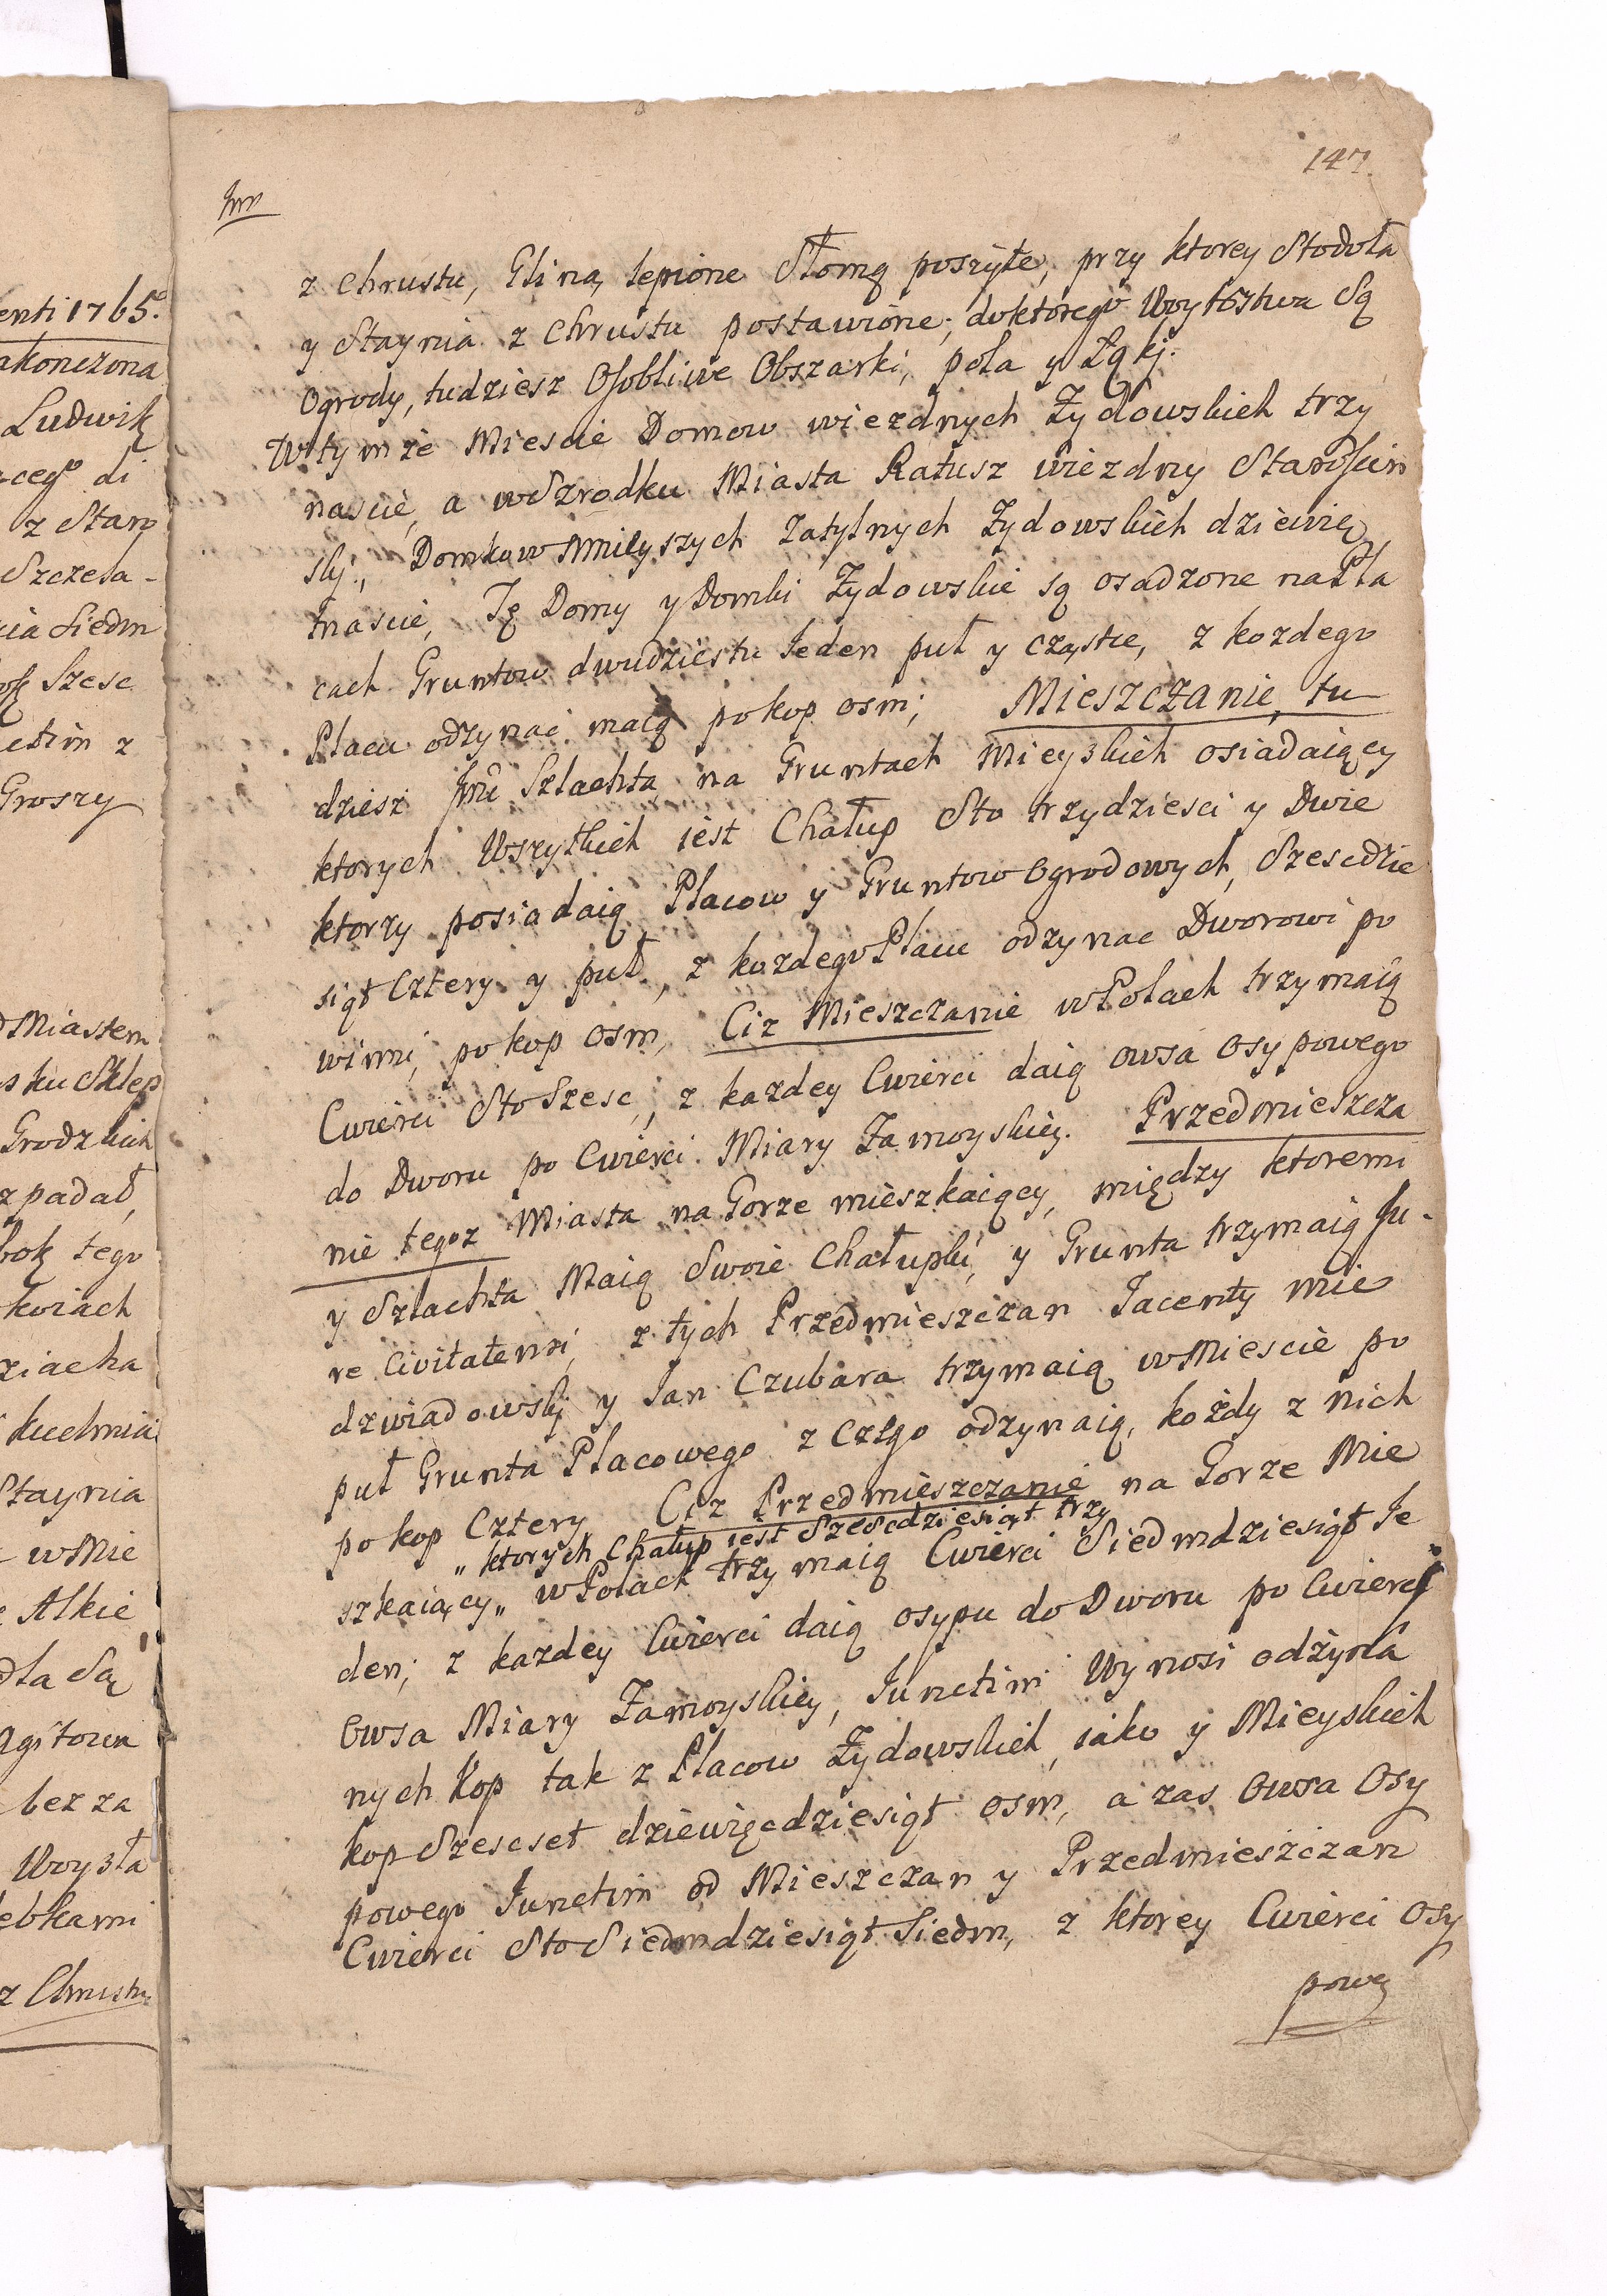 enti 1765.
akonczona
Ludwik
cego di
z Staro
Szczesa-
cia Siedm
Szesc
ctim z
Groszy
Miastem
sku Sklep
Grodzkich
zpadał,
bok tego
koiach
ziacha
kuchnia
Staynia
w Mie
Alkie
dla Są
bez za
Woyzła
ebkami
z Chrustu
147.
z Chrustu, Gliną lepione Słomą poszyte, przy ktorey Stodoła
y Staynia z Chrustu postawione, do ktorego Woytostwa Są
Ogrody, tudziesz Osobliwe Obszarki, pola y Łąkj.
W tymże Miescie Domow wiezdnych Żydowskich trzy
nascie, a wSzrodku Miasta Ratusz wiezdny Starościn
skj, Domkow mnieyszych Zatylnych Żydowskich dziewię
tnascie, Tę Domy y Domki Żydowskie są osadzone na Pla
cach Gruntow dwudziestu Ieden puł y cząstce, z kozdego
Placu odzynać maią po kop osm; Mieszczanie, tu
dziesz Jmć Szlachta na Gruntach Mieyskich osiadaiący
ktorych Wszytkich iest Chałup Sto trzydziesci y Dwie
ktorzy posiadaią Placow y Gruntow Ogrodowych, Szescdzie
siąt Cztery y puł, z kozdego Placu odzynac Dworowi po
winni, po kop osm, Ciz Mieszczanie w Polach trzymaią
Cwierci Sto Szesc, z kazdey Cwierci daią owsa Osypowego
do Dworu po Cwierci Miary Zamoyskiey. Przedmieszcza
nie tegoz Miasta na Gorze mieszkaiący, między ktoremi
y Szlachta Maią Swoie Chałupki, y Grunta trzymaią Ju-
re Civitatensi, z tych Przedmieszczan Jacenty Mie
dzwiadowskj y Jan Czubara trzymaią w Miescie po
puł Grunta Placowego z czego odzynaią, kożdy z nich
po kop Cztery Ciz Przedmieszczanie na Gorze Mie
„ktorych Chałup iest Szescdziesiąt trzy
szkaiący„ w Polach trzymaią Cwierci Siedmdziesiąt Ie
den; z kazdey Cwierci daią osypu do Dworu po Cwierci
Owsa Miary Zamoyskiey, Junctim Wynosi odżyna
nych Kop tak z Placow Żydowskich, iako y Mieyskich
kop Szescset dziewięcdziesiąt osm, a zas Owsa Osy
powego Junctim od Mieszczan y Przedmieszczan
Cwierci Sto Siedmdziesiąt Siedm, z ktorey Cwierci Osy
powey